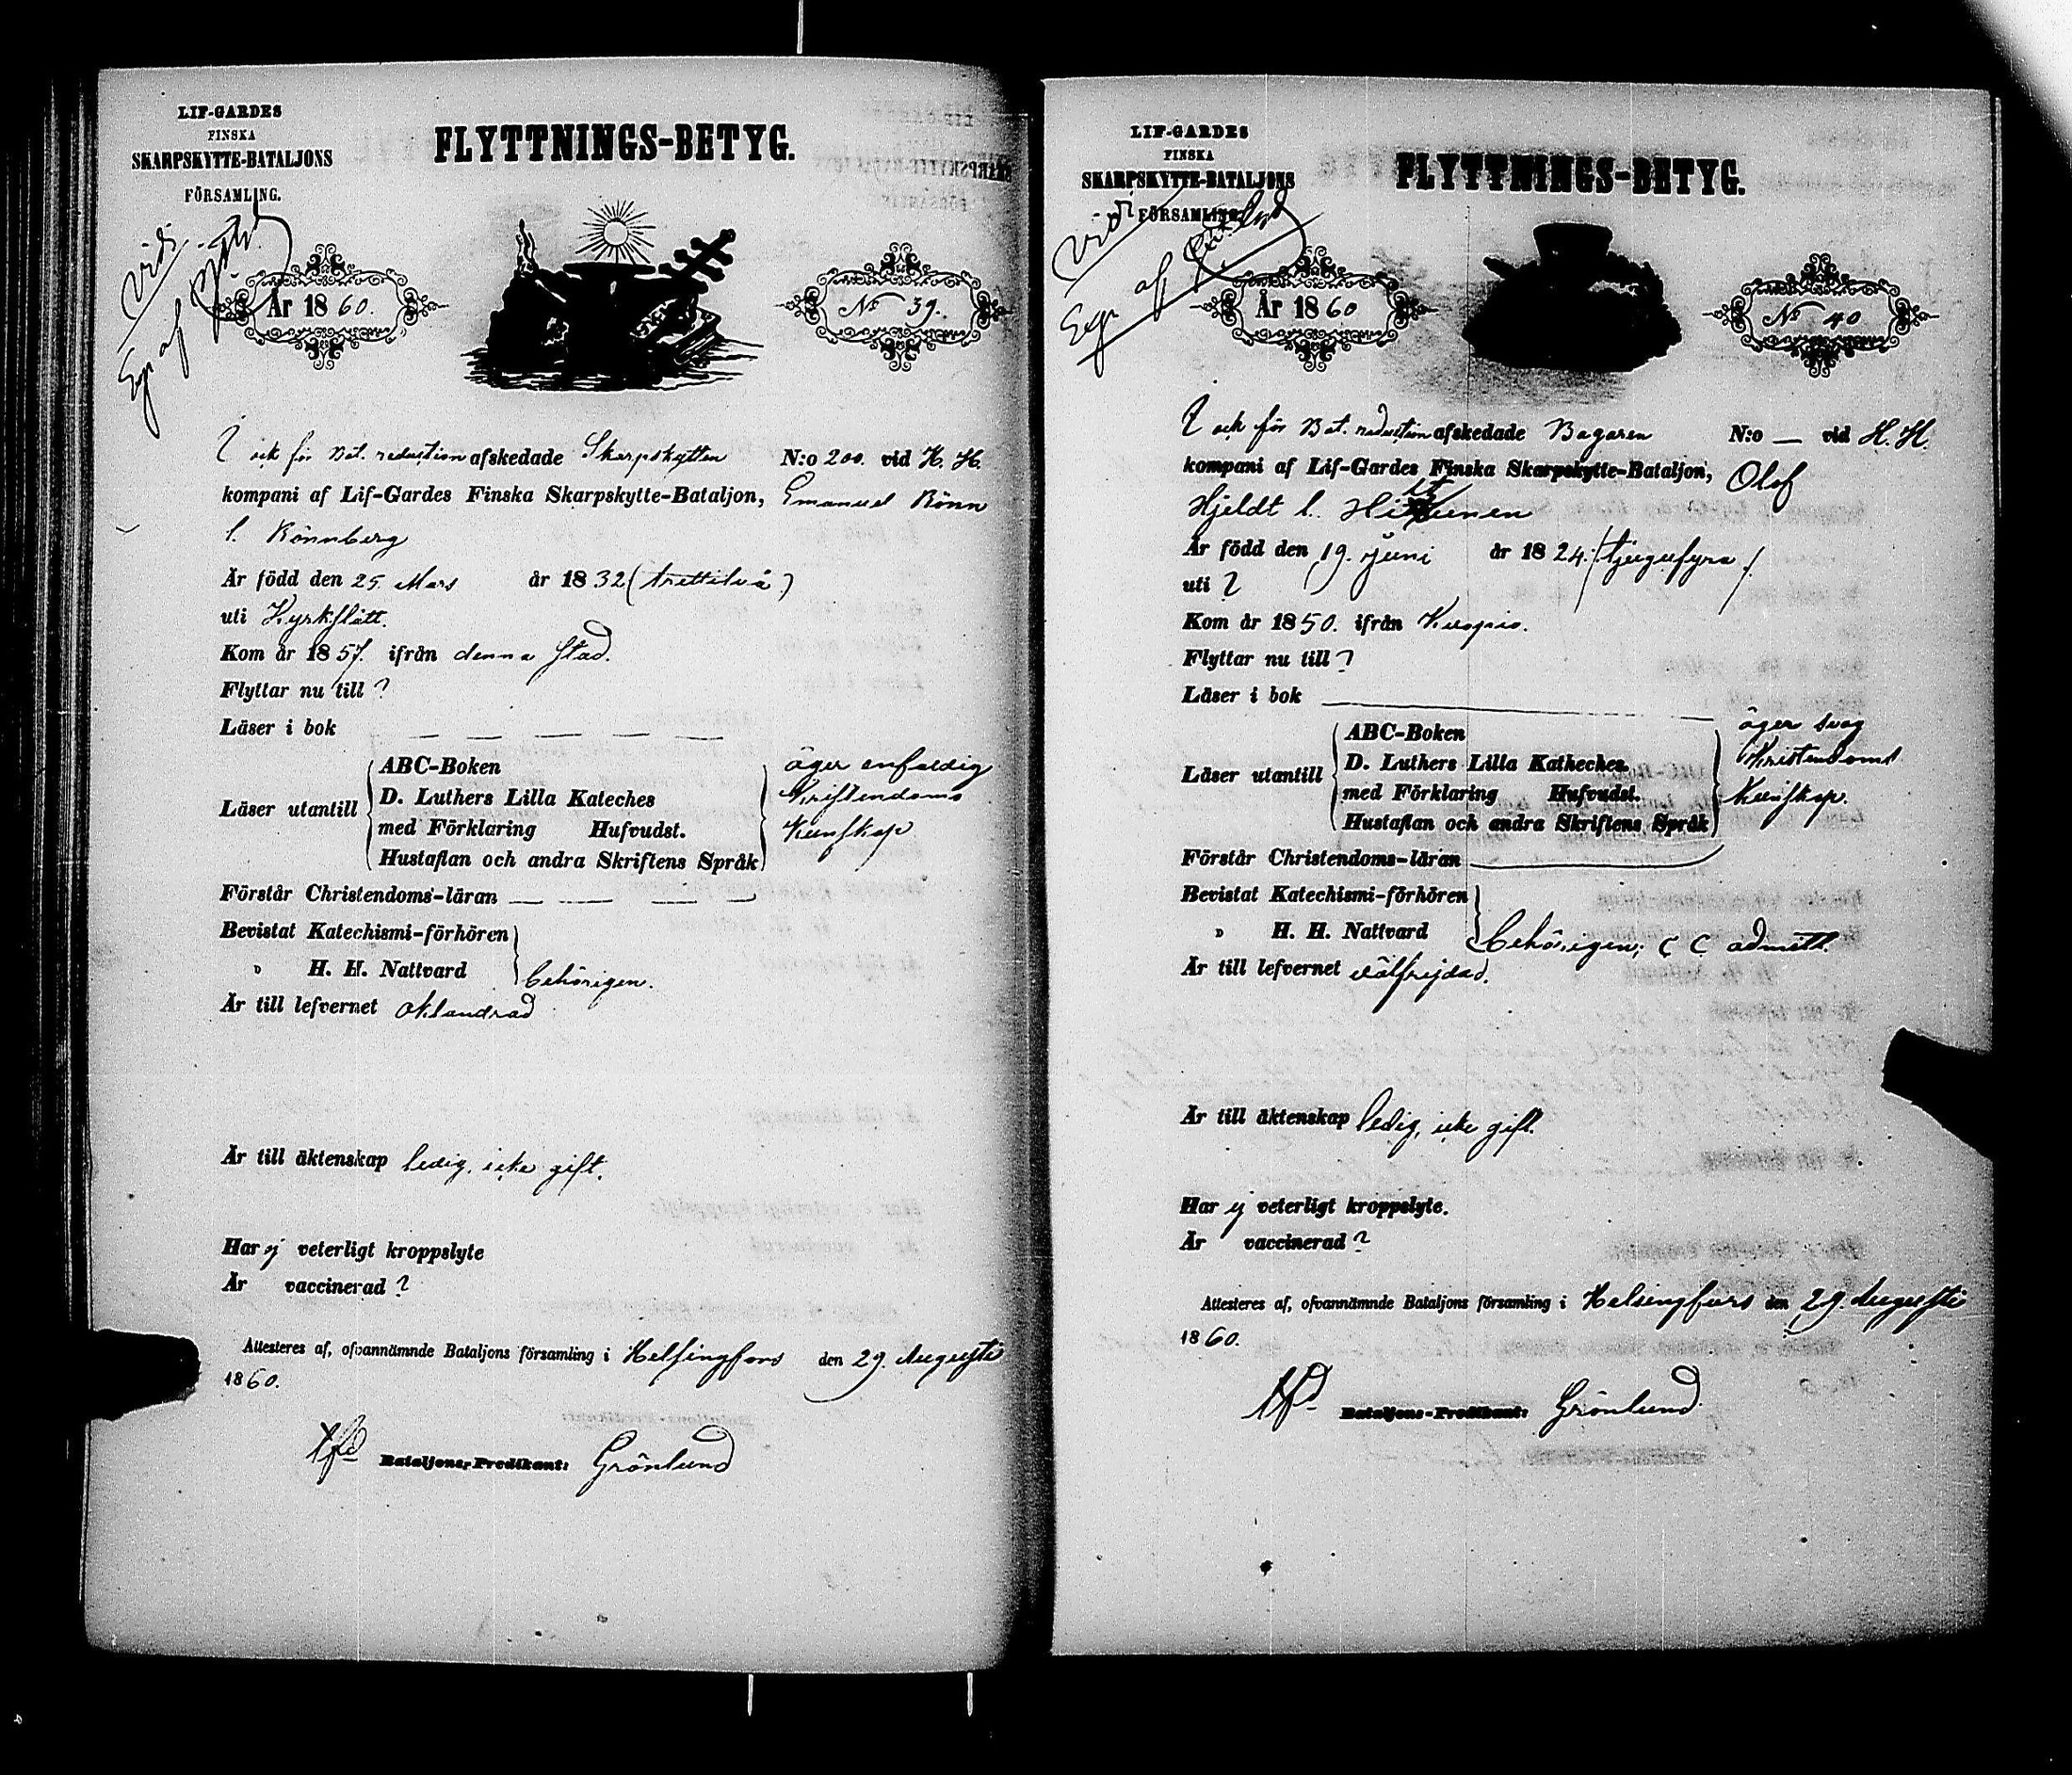 LIF-GARDES
FINSKA
SKARPSKYTTE-BATALJONS
FÖRSAMLING.
FLYTTNINGS-BETYG.
vidi
År 1860.
No 39.
och för Bat. reduction afskedade Skarpskytten N:o 200. vid H. H.
kompani af Lif-Gardes Finska Skarpskytte-Bataljon, Emanuel Rönn
l. Rönnberg
Är född den 25 Mars år 1832 (trettitvå)
uti Kyrkslätt.
Kom år 1857. ifrån denna stad.
Flyttar nu till ?
Läser i bok — — — —
Läser utantill
ABC-Boken
D. Luthers Lilla Kateches
med Förklaring Hufvudst.
Hustaflan och andra Skriftens Språk
äger enfaldig
Kristendoms
kunskap
Förstår Christendoms-läran — — — —
Bevistat Katechismi-förhören
" H. H. Nattvard
behörigen.
Är till lefvernet oklandrad
Är till äktenskap ledig, icke gift.
Har ej veterligt kroppslyte
Är vaccinerad ?
Attesteras af, ofvannämnde Bataljons församling i Helsingfors den 29. Augusti
1860.
Bataljons-Predikant: Grönlund
LIF-GARDES
FINSKA
SKARPSKYTTE-BATALJONS
FÖRSAMLING.
FLYTTNINGS-BETYG.
vidi
År 1860
No 40
och för Bat. reduction afskedade Bagaren N:o — vid H. H.
kompani af Lif-Gardes Finska Skarpskytte-Bataljon, Olof
Hjeldt l.
Är född den 19. Juni år 1824. (tjugufyra).
uti ?
Kom år 1850. ifrån Kuopio.
Flyttar nu till ?
Läser i bok
Läser utantill
ABC-Boken
D. Luthers Lilla Katheches
med Förklaring Hufvudst.
Hustaflan och andra Skriftens Språk
äger svag
Kristendoms
Kunskap.
Förstår Christendoms-läran
Bevistat Katechismi-förhören
" H. H. Nattvard
behörigen; admitt.
Är till lefvernet välfrejdad.
Är till äktenskap ledig, icke gift.
Har ej veterligt kroppslyte.
Är vaccinerad ?
Attesteres af, ofvannämnde Bataljons församling i Helsingfors den 29. Augusti
1860.
Bataljons-Predikant: Grönlund